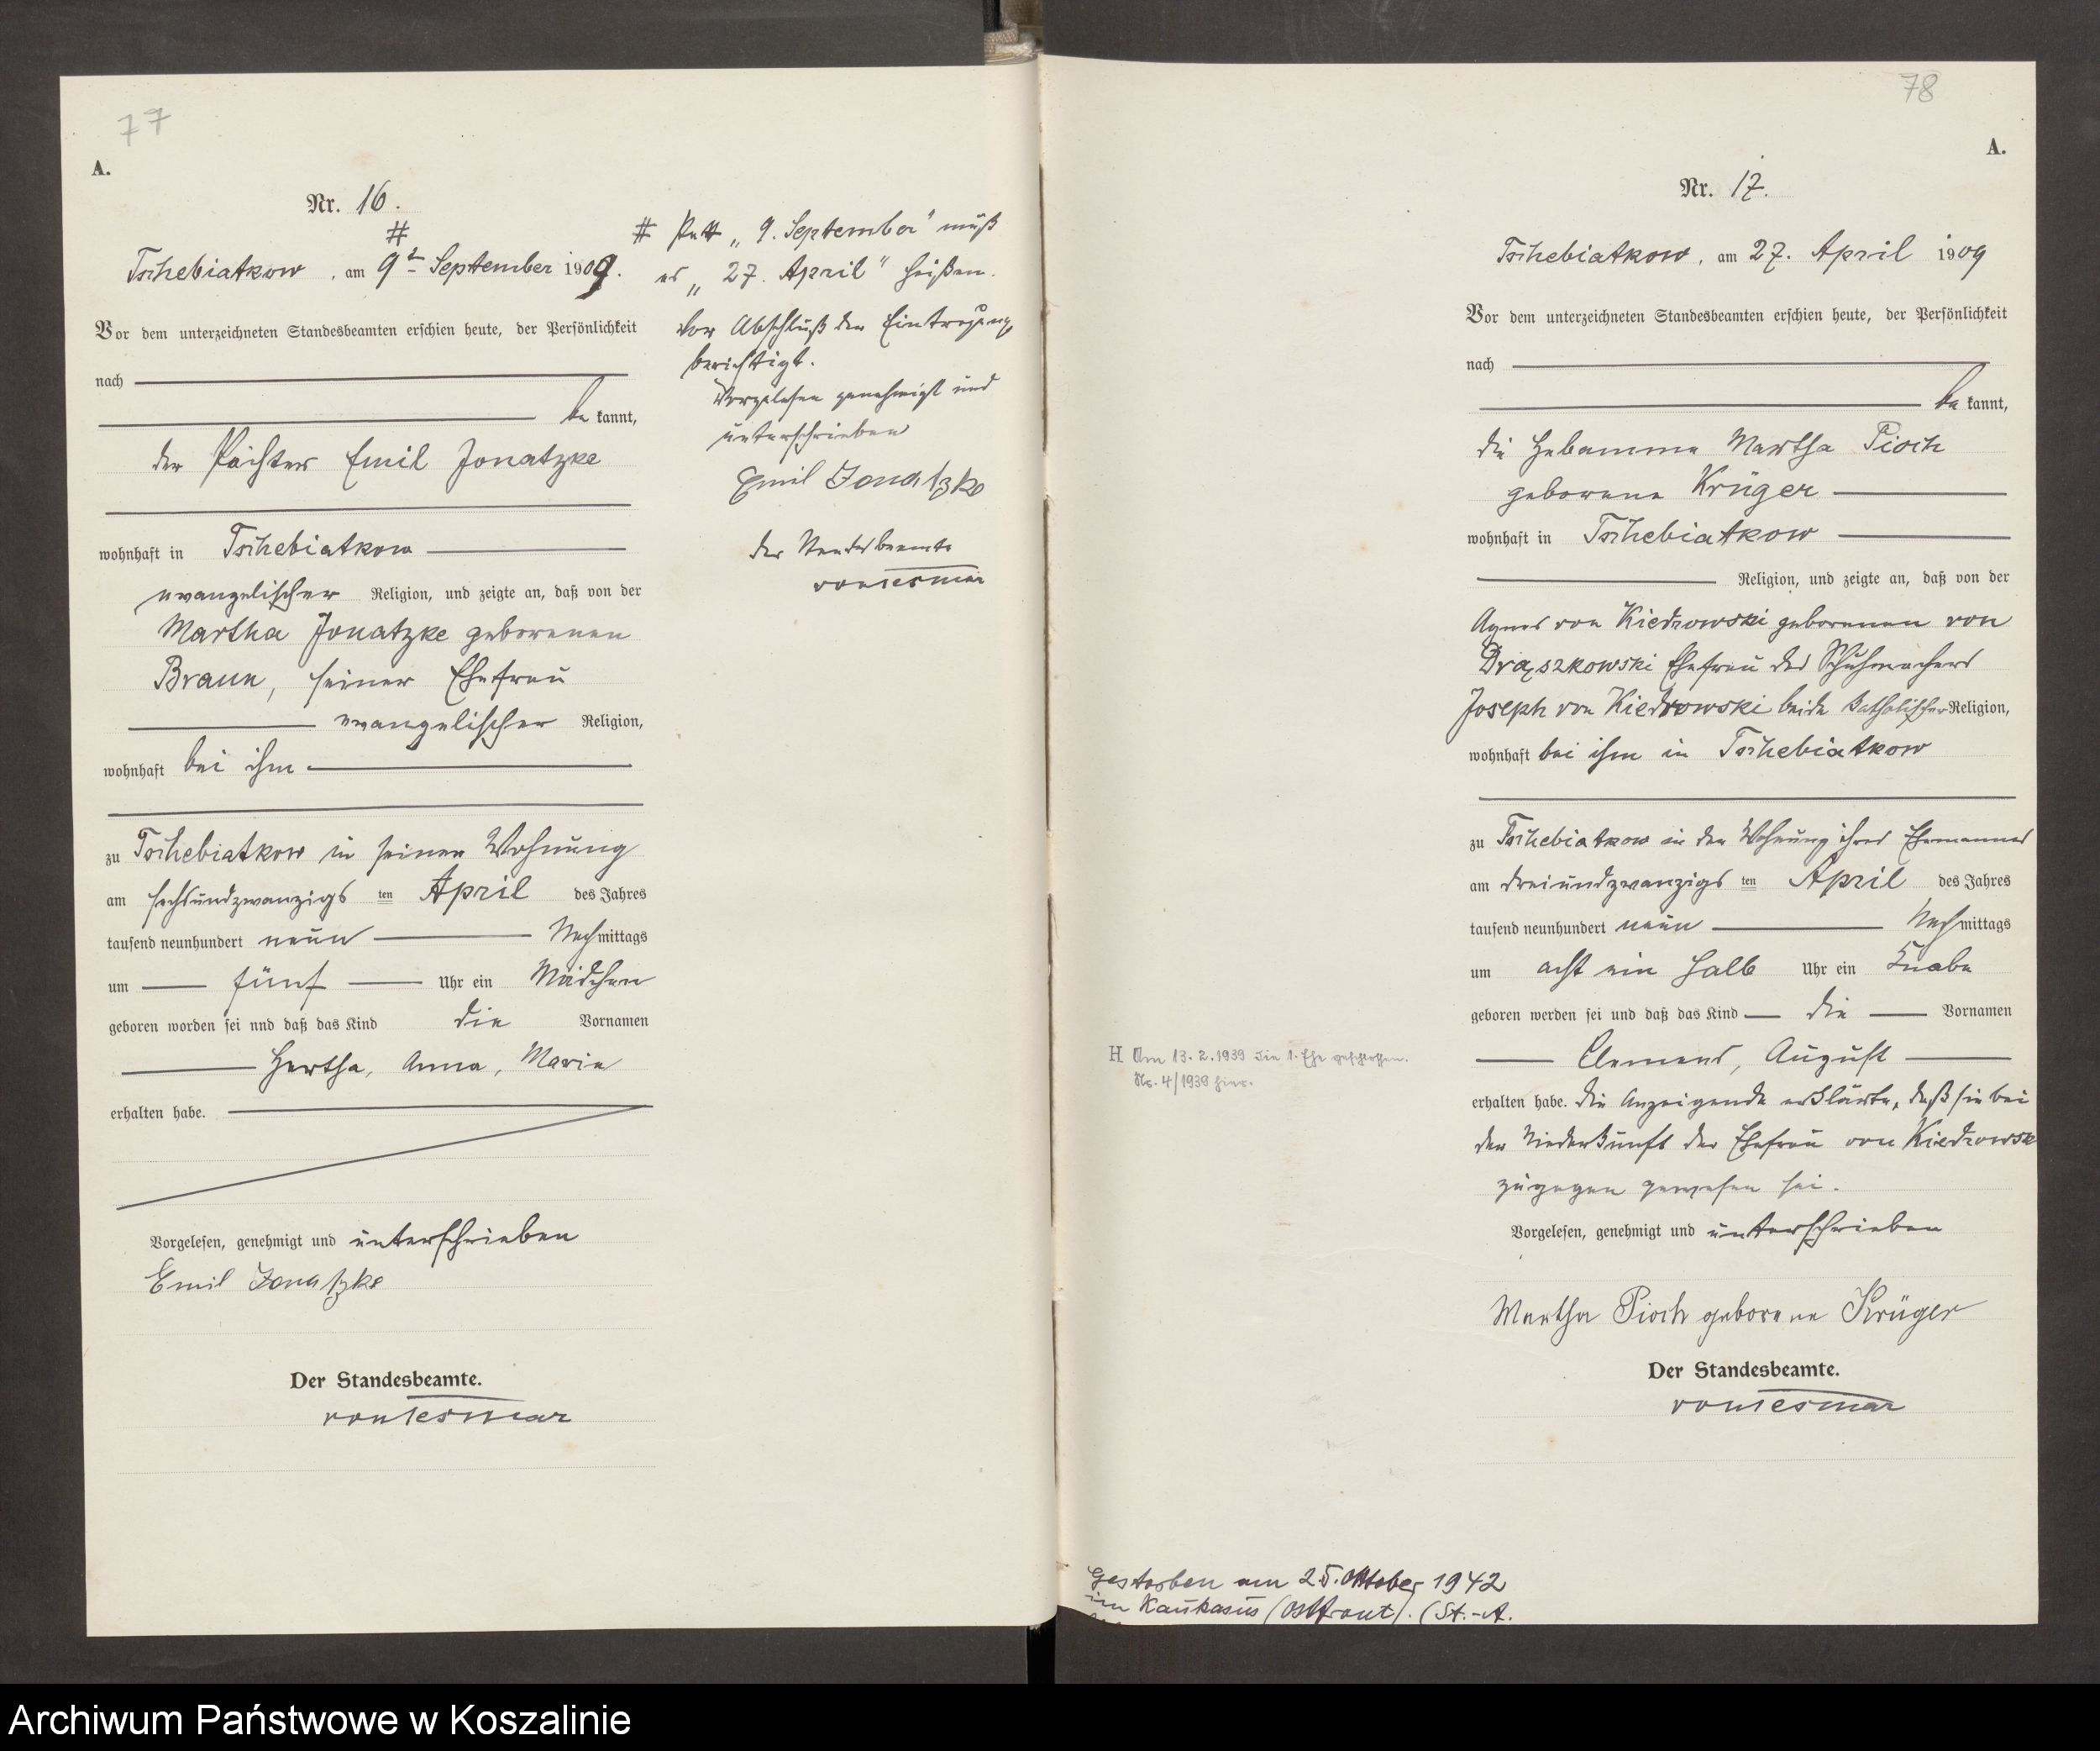 77
A.
Nr. 16.
#
Tschebiatkow, am 9t September 1909.
Vor dem unterzeichneten Standesbeamten erschien heute, der Persönlichkeit
nach
be kannt,
der Pächter Emil Jonatzke
wohnhaft in Tschebiatkow
evangelischer Religion, und zeigte an, daß von der
Martha Jonatzke geborenen
Braun, seiner Ehefrau
evangelischer Religion,
wohnhaft bei ihm
zu Tschebiatkow in seiner Wohnung
am sechsundzwanzigs ten April des Jahres
tausend neunhundert neun Nachmittags
um fünf Uhr ein Mädchen
geboren worden sei nnd daß das Kind die Vornamen
Hertha, Anna, Marie
erhalten habe.
Vorgelesen, genehmigt und unterschrieben
Emil Jonatzke
Der Standesbeamte.
# Statt „9. September" muß
es „27. April" heißen.
Vor Abschluß der Eintragung
berichtigt.
Vorgelesen genehmigt und
unterschrieben
Emil Jonatzke
der Standesbeamte
78
A.
Nr. 17.
Tschebiatkow, am 27. April 1909
Vor dem unterzeichneten Standesbeamten erschien heute, der Persönlichkeit
nach
be kannt,
die Hebamme Martha Pioch
geborene Krüger
wohnhaft in Tschebiatkow
Religion, und zeigte an, daß von der
Agnes von Kiedrowski geborenen von
Drązszkowski Ehefrau des Schuhmachers
Joseph von Kiedrowski beide katholischer Religion,
wohnhaft bei ihm in Tschebiatkow
zu Tschebiatkow in der Wohnung ihres Ehemannes
am dreiundzwanzigs ten April des Jahres
tausend neunhundert neun Nachmittags
um acht ein halb Uhr ein Knabe
geboren werden sei und daß das Kind die Vornamen
Clemens, August
erhalten habe. Die Anzeigende erklärte, daß sie bei
der Niederkunft der Ehefrau von Kiedrowski
zugegen gewesen sei.
Vorgelesen, genehmigt und unterschrieben
Martha Pioch geborene Krüger
Der Standesbeamte.
H. Am 13.2.1939 die 1. Ehe geschlossen.
Nr. 4/1939 hier.
Gestorben am 25. Oktober 1942
im Kaukasus (Ostfront). (St.-A.
Archiwum Państwowe w Koszalinie